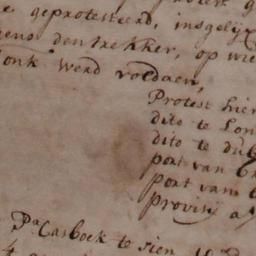 geprotesteerd, insgelijx
den trekker, op wie
werd voldaen,
Protest hier
dito te Lon
dito te dub
port van
port van
provisij a
Pa Casboek te sien